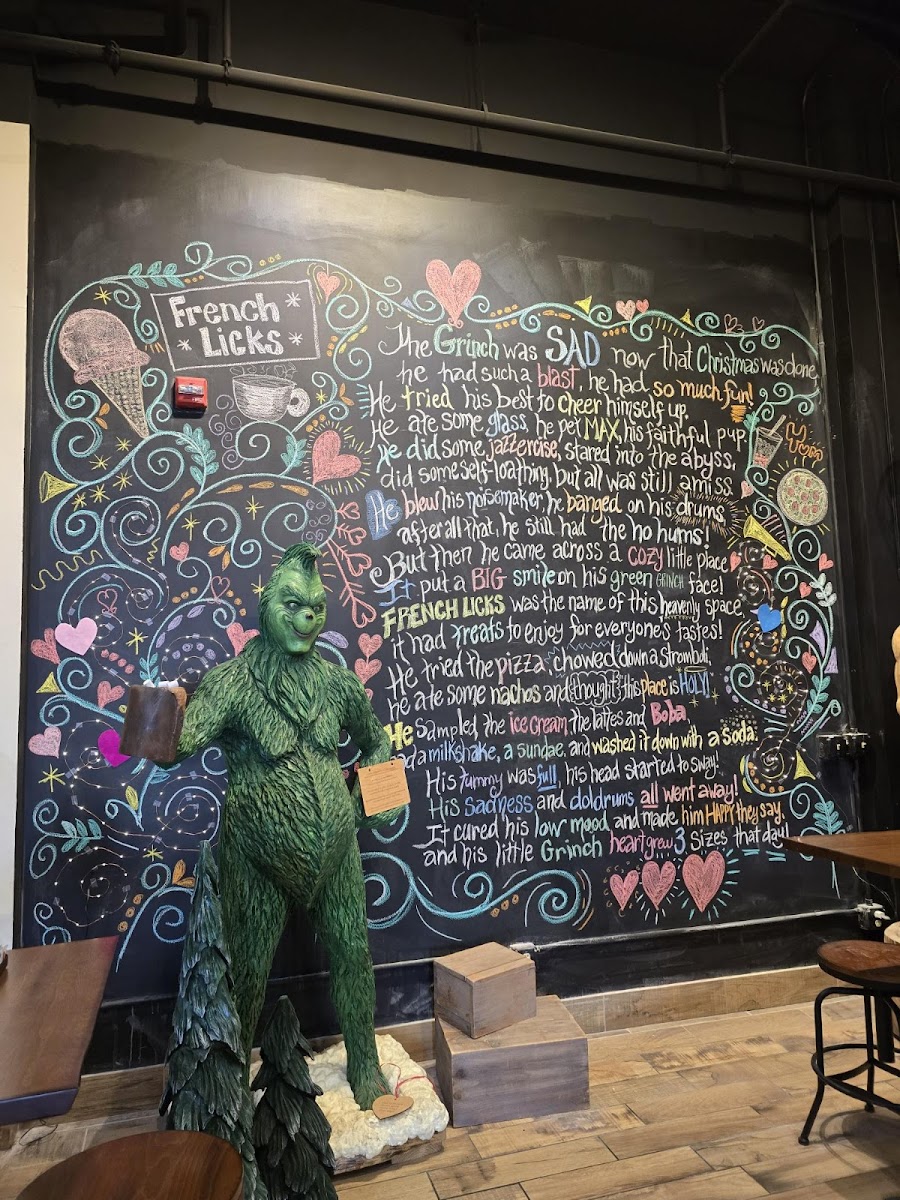 French
Licks
The Grinch was SAD now that Christmas was done,
he had such a blast, he had so much fun!
He tried his best to cheer himself up.
He ate some glass, he pet MAX, his faithful pup.
He did some jazzercise, stared into the abyss,
did some self-loathing, but all was still amiss.
He blew his noisemaker, he banged on his drums,
after all that, he still had the ho hums!
But then he came across a cozy little place
It put a BIG smile on his green GRINCH face!
FRENCH LICKS was the name of this heavenly space,
it had treats to enjoy for everyone's tastes!
He tried the pizza, chowed down a Stromboli,
he ate some nachos and thought this place is HOLY!
He sampled the ice cream, the lattes and Boba,
had a milkshake, a sundae, and washed it down with a soda.
His tummy was full, his head started to sway!
His sadness and doldrums all went away!
It cured his low mood and made him HAPPY they say,
and his little Grinch heart grew 3 sizes that day!